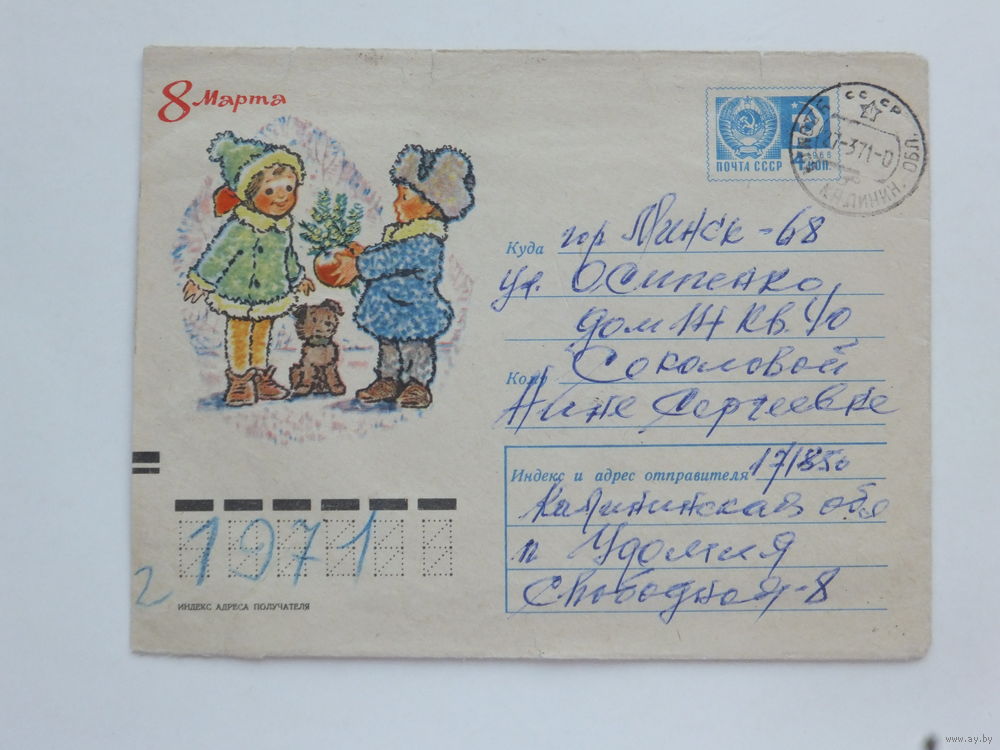 8 Марта
ПОЧТА СССР
1966
4 коп
СССР
КАЛИНИН. ОБЛ.
Куда гор Минск-68
ул. Осипенко,
дом 17 кв. 40
Кому Соколовой
Нине Сергеевне
Индекс и адрес отправителя 171850
Калининская обл
п Удомля
Свободная-8
1971
2
ИНДЕКС АДРЕСА ПОЛУЧАТЕЛЯ
www.ay.by